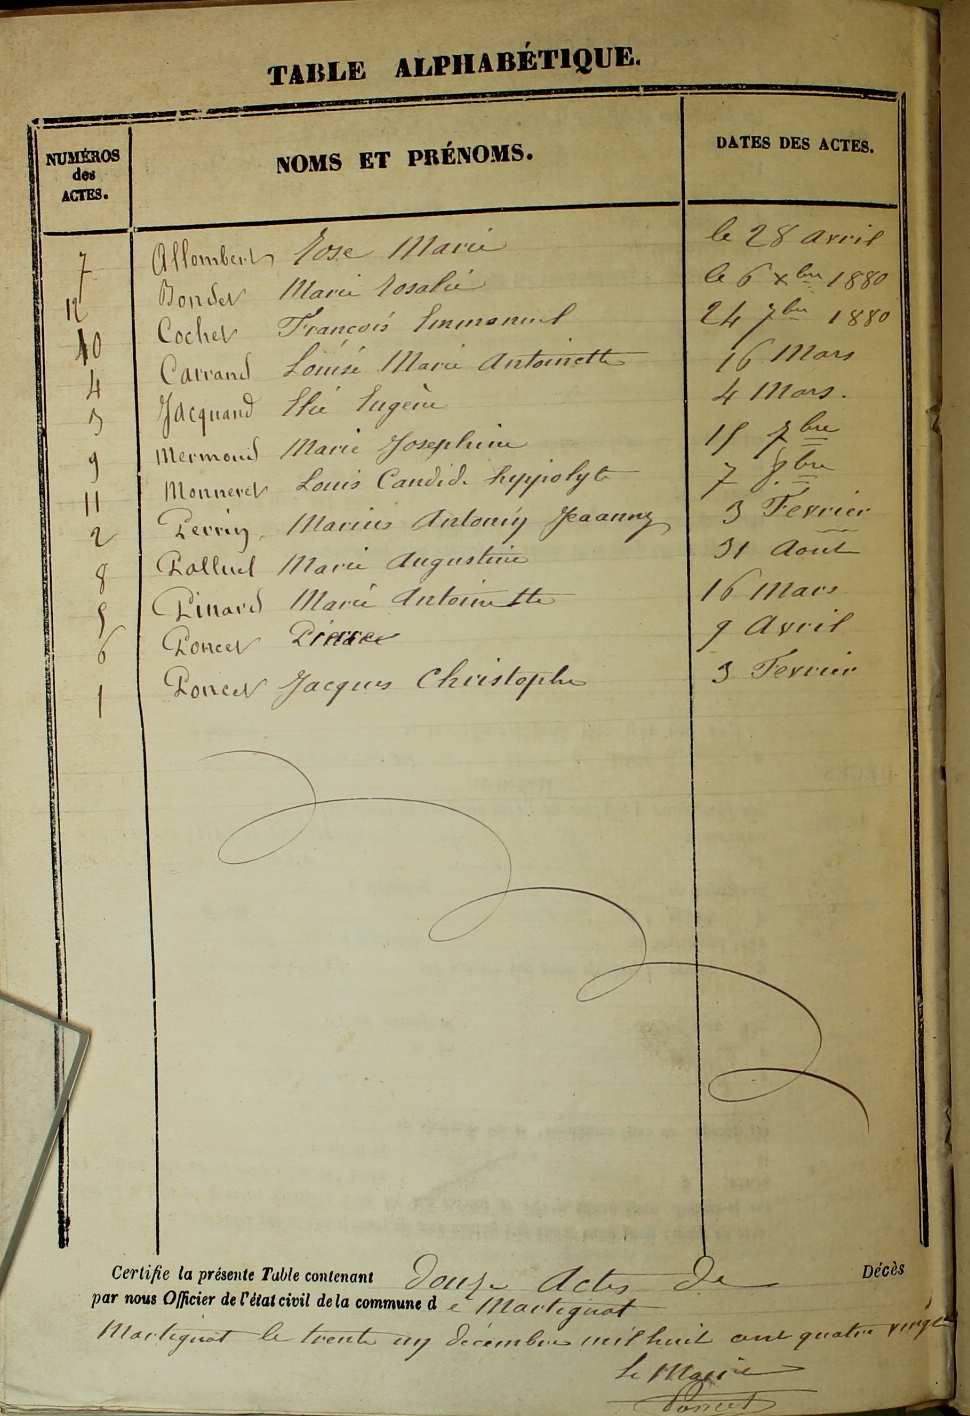 TABLE ALPHABÉTIQUE.
NUMÉROS des ACTES. NOMS ET PRÉNOMS. DATES DES ACTES.
7 Allombert Rose Marie le 28 avril
12 Bondet Marie Rosalie le 6 Xbre 1880
10 Cochet François Emmanuel 24 7bre 1880
4 Carrand Louise Marie Antoinette 16 Mars
3 Jacquand Elie Eugène 4 Mars.
9 Mermoud Marie Josephine 15 7bre
11 Monneret Louis Candide hyppolyte 7 8bre
2 Perrin Marius Antonin Jeanny 3 Fevrier
8 Marie Augustine 31 Aout
5 Pinard Marie Antoinette 16 Mars
6 Poncet Pierre 9 Avril
1 Poncet Jacques Christophe 3 Fevrier
Certifie la présente Table contenant douze Actes de Décès
par nous Officier de l'état civil de la commune d e Martignat
Martignat le trente un décembre mil huit cent quatre vingt
le Maire
Poncet